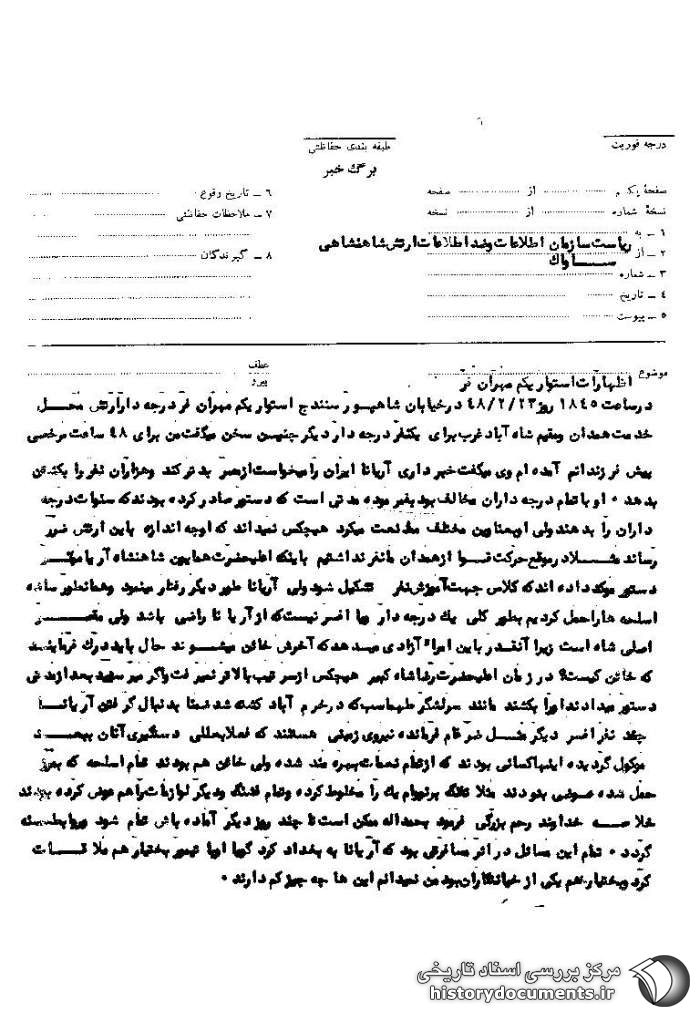 درجه فوریت
طبقه بندی حفاظتی
برگ خبر
صفحهٔ یکم از صفحه
نسخهٔ شماره از نسخه
۱ ـ به ریاست سازمان اطلاعات و ضد اطلاعات ارتش شاهنشاهی
۲ ـ از ســاواک
۳ ـ شماره
۴ ـ تاریخ
۵ ـ پیوست
۶ ـ تاریخ وقوع
۷ ـ ملاحظات حفاظتی
۸ ـ گیرندگان
موضوع اظهارات استوار یکم مهران فر
عطف
پیرو
در ساعت ۱۸۴۵ روز ۴۸/۲/۲۳ در خیابان شاهپور سنندج استوار یکم مهران فر درجه دار ارتش محل
خدمت همدان و مقیم شاه آباد غرب برای یکنفر درجه دار دیگر چنین سخن میگفت من برای ۴۸ ساعت مرخصی
پیش فرزندانم آمده ام وی میگفت خبر داری آریانا ایران را میخواست از همر بدتر کند و هزاران نفر را بکشتن
بدهد ۰ او با تمام درجه داران مخالف بود بغیر موده مدتی است که دستور صادر کرده بودند که سنوات درجه
داران را بدهند ولی او بعناوین مختلف ممانعت میکرد هیچکس نمیداند که او چه اندازه باین ارتش ضرر
رساند مثلا در موقع حرکت قوا از همدان مانفر نداشتیم با اینکه اعلیحضرت همایون شاهنشاه آریامهر
دستور موکد داده اند که کلاس جهت آموزش نفر تشکیل شود ولی آریانا طور دیگر رفتار مینمود و همانطور ساده
اسلحه ها را حمل کردیم بطور کلی یک درجه دار ویا افسر نیست که از آریانا راضی باشد ولی مقصر
اصلی شاه است زیرا آنقدر باین امراء آزادی میدهد که آخرش خائن میشوند حال باید درک فرمایند
که خائن کیست؟ در زمان اعلیحضرت رضا شاه کبیر هیچکس از سرتیپ بالاتر نمیرفت و اگر میرسید بعد از مدتی
دستور میدادند او را بکشند مانند سرلشگر طهماسب که در خرم آباد کشته شد ضمنا بدنبال گرفتن آریانا
چند نفر افسر دیگر مثل ضرغام فرمانده نیروی زمینی هستند که فعلا بعللی دستگیری آنان ببعد
موکول گردیده اینها کسانی بودند که از تمام نعمات بهره مند شده ولی خائن هم بودند تمام اسلحه که بمرز
حمل شده عوضی بودند مثلا تفنگ برنو و ام یک را مخلوط کرده و تمام فشنگ و دیگر لوازمات را هم عوض کرده بودند
خلاصه خداوند رحم بزرگی فرمود بحمداله ممکن است تا چند روز دیگر آماده باش تمام شود و
گردد ۰ تمام این مسائل در اثر مسافرتی بود که آریانا به بغداد کرد گویا او با تیمور بختیار هم ملاقات
کرد و بختیار هم یکی از خیانتکاران بود من نمیدانم این ها چه چیز کم دارند ۰
مرکز بررسی اسناد تاریخی
historydocuments.ir